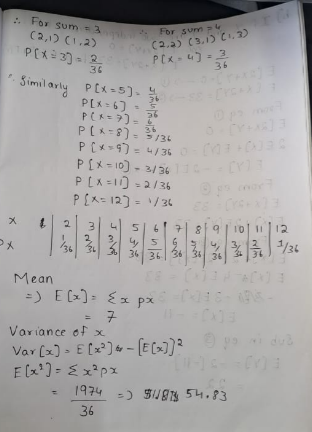 ∴ For sum = 3
(2,1) (1,2)
P[X=3] = 2/36
For sum = 4
(2,2) (3,1) (1,3)
P[X=4] = 3/36
Similarly P[X=5] = 4/36
P[X=6] = 5/36
P[X=7] = 6/36
P[X=8] = 5/36
P[X=9] = 4/36
P[X=10] = 3/36
P[X=11] = 2/36
P[X=12] = 1/36
X | 2 | 3 | 4 | 5 | 6 | 7 | 8 | 9 | 10 | 11 | 12
Px | 1/36 | 2/36 | 3/36 | 4/36 | 5/36 | 6/36 | 5/36 | 4/36 | 3/36 | 2/36 | 1/36
Mean
=) E[x] = Σ x px
= 7
Variance of x
Var[x] = E[x²] - [E(x)]²
E[x²] = Σ x² px
= 1974/36 =) 54.83